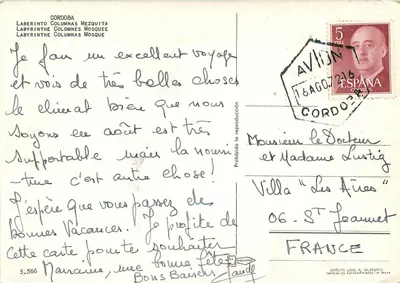 CORDOBA
LABERINTO COLUMNAS MEZQUITA
LABYRINTHE COLONNES MOSQUEE
LABYRINTHE COLUMNS MOSQUE
Je fais un excellent voyage
et vois de très belles choses
le climat bien que nous
soyons en août est très
supportable mais la nourri-
ture c'est autre chose!
J'espère que vous passez de
bonnes Vacances. Je profite de
cette carte pour te souhaiter
Marraine, une bonne fête
Bons Baisers
5.566
Prohibida la reproducción
5
PTAS
ESPAÑA
AVION
16 AGO 72
CORDOBA
Monsieur le Docteur
et Madame Lustig
Villa "Les Aires"
06 - ST Jeannet
FRANCE